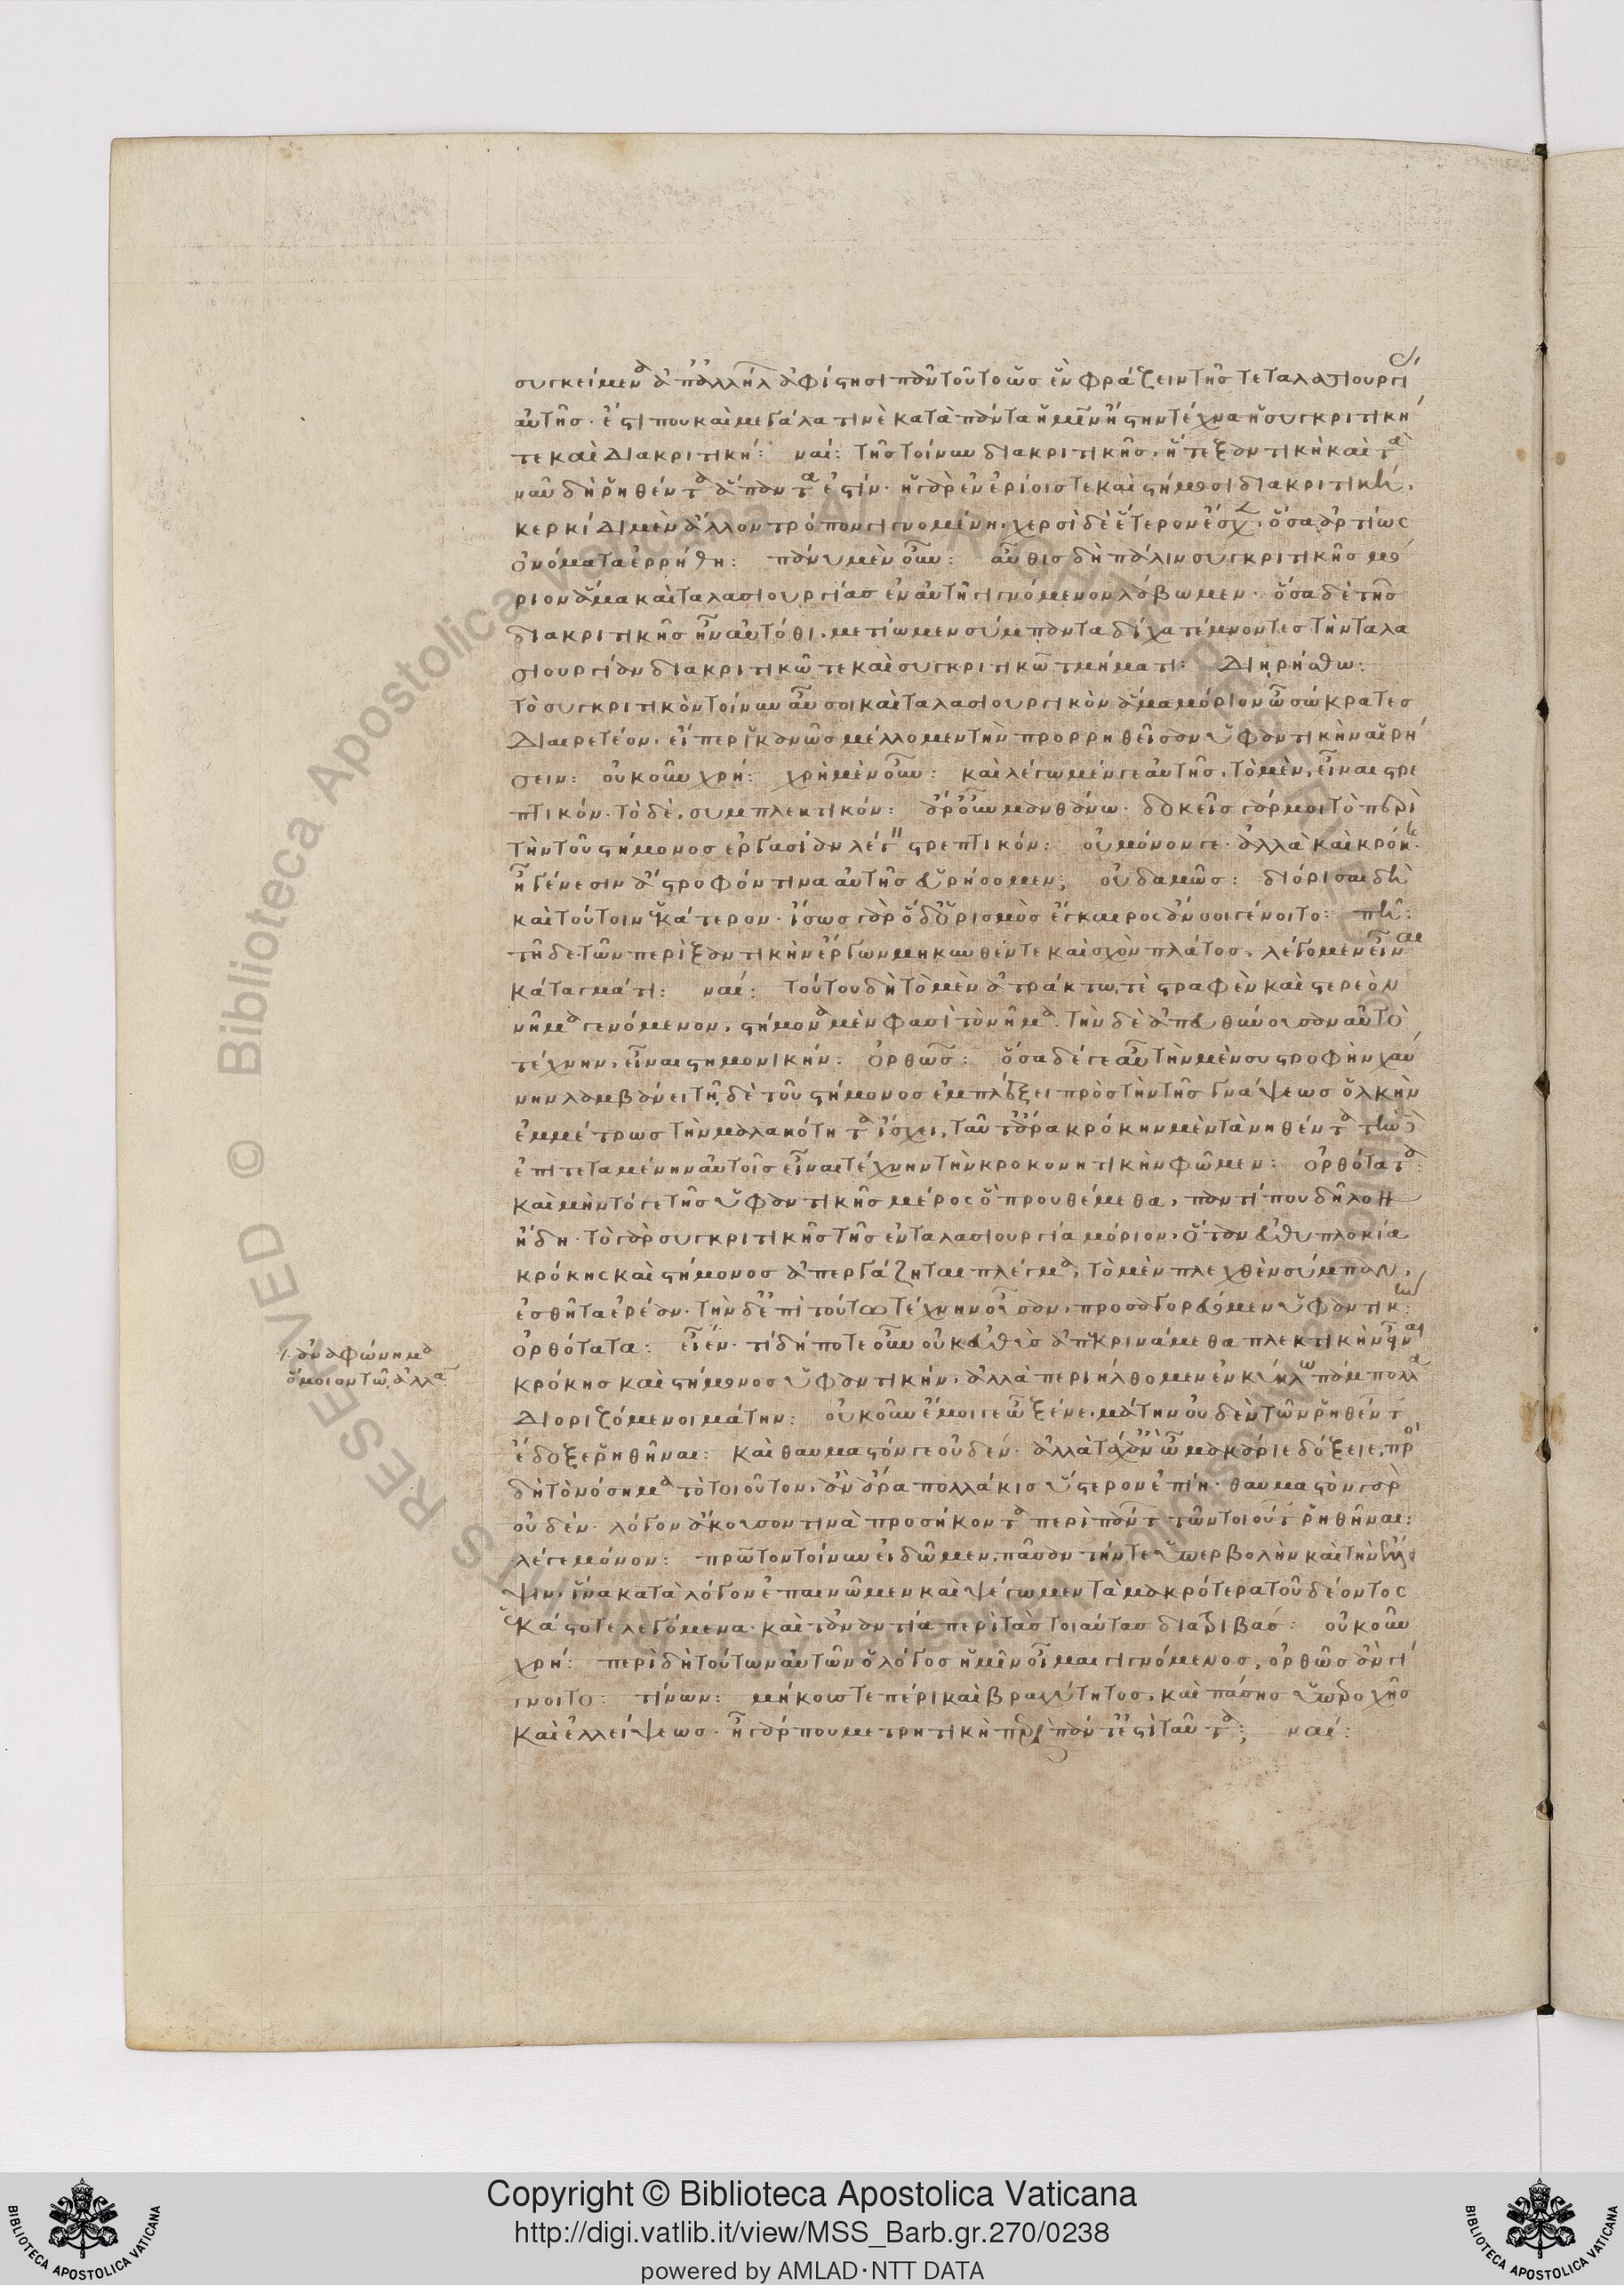 συγκείμενα ἀπ' ἀλλήλων ἀφίστησι πᾶν τοῦτο ὡς ἓν φράζειν τῆς τε ταλασιουργί
αὐτῆς· ἐστί που καὶ μεγάλα τινὲ κατὰ πάντα ἡμῖν ἤστην τέχνα ἡ συγκριτική
τε καὶ διακριτική: ναί: τῆς τοίνυν διακριτικῆς, ἥ τε ξαντικὴ καὶ τὰ
νῦν δὴ ῥηθέντα ἅπαντα ἐστίν· ἡ γὰρ ἐν ἐρίοις τε καὶ στήμοσι διακριτική,
κερκίδι μὲν ἄλλον τρόπον γιγνομένη, χερσὶ δὲ ἕτερον ἔσχεν, ὅσα ἀρτίως
ὀνόματα ἐρρήθη: πάνυ μὲν οὖν: αὖθις δὴ πάλιν συγκριτικῆς μό
ριον ἅμα καὶ ταλασιουργίας ἐν αὐτῆ γιγνόμενον λάβωμεν· ὅσα δὲ τῆς
διακριτικῆς ἦν αὐτόθι, μετίωμεν σύμπαντα δίχα τέμνοντες τὴν ταλα
σιουργίαν διακριτικῶ τε καὶ συγκριτικῶ τμήματι: διηρήσθω:
τὸ συγκριτικὸν τοίνυν αὖ σοι καὶ ταλασιουργικὸν ἅμα μόριον ὦ σώκρατες
διαιρετέον, εἴπερ ἱκανῶς μέλλομεν τὴν προρρηθεῖσαν ὑφαντικὴν αἱρή
σειν: οὐκοῦν χρή: χρὴ μὲν οὖν: καὶ λέγωμέν γε αὐτῆς, τὸ μὲν, εἶναι στρε
πτικόν· τὸ δὲ, συμπλεκτικόν: ἆρ' οὖν μανθάνω· δοκεῖς γάρ μοι τὸ περὶ
τὴν τοῦ στήμονος ἐργασίαν λέγειν στρεπτικόν: οὐ μόνον γε· ἀλλὰ καὶ κρόκης·
ἢ γένεσιν ἄστροφόν τινα αὐτῆς εὑρήσομεν; οὐδαμῶς: διόρισαι δὴ
καὶ τούτοιν ἑκάτερον· ἴσως γὰρ ὁ διορισμὸς ἔγκαιρος ἄν σοι γένοιτο: πῆ:
τῆδε· τῶν περὶ ξαντικὴν ἔργων μηκυνθέν τε καὶ σχὸν πλάτος, λέγομεν εἶναι
κάταγμά τι: ναί: τούτου δὴ τὸ μὲν ἀτράκτω τε στραφὲν καὶ στερεὸν
νῆμα γενόμενον, στήμονα μὲν φασὶ τὸ νῆμα· τὴν δὲ ἀπευθύνουσαν αὐτὸ
τέχνην, εἶναι στημονικήν: ὀρθῶς: ὅσα δέ γε αὖ τὴν μὲν συστροφὴν χαύ
νην λαμβάνει τῆ δὲ τοῦ στήμονος ἐμπλέξει πρὸς τὴν τῆς γνάψεως ὁλκὴν
ἐμμέτρως τὴν μαλακότητα ἴσχει, ταῦτ' ἄρα κρόκην μὲν τὰ νηθέντα τὴν δὲ
ἐπιτεταμένην αὐτοῖς εἶναι τέχνην τὴν κροκονητικὴν φῶμεν: ὀρθότατα:
καὶ μὴν τό γε τῆς ὑφαντικῆς μέρος ὃ προυθέμεθα, παντί που δῆλον
ἤδη· τὸ γὰρ συγκριτικῆς τῆς ἐν ταλασιουργία μόριον, ὅταν εὐθυπλοκία
κρόκης καὶ στήμονος ἀπεργάζηται πλέγμα, τὸ μὲν πλεχθὲν σύμπαν,
ἐσθῆτα ἐρεᾶν· τὴν δ' ἐπὶ τούτω τέχνην οὖσαν, προσαγορεύομεν ὑφαντικήν:
ὀρθότατα: εἶεν· τί δή ποτε οὖν οὐκ εὐθὺς ἀπεκρινάμεθα πλεκτικὴν εἶναι
κρόκης καὶ στήμονος ὑφαντικήν, ἀλλὰ περιήλθομεν ἐν κύκλω πάμπολλα
διοριζόμενοι μάτην: οὐκοῦν ἔμοιγε ὦ ξένε, μάτην οὐδὲν τῶν ῥηθέντ
ἔδοξε ῥηθῆναι: καὶ θαυμαστόν γε οὐδέν· ἀλλὰ τάχ' ἂν ὦ μακάριε δόξειε, πρὸς
δὴ τὸ νόσημα τὸ τοιοῦτον, ἂν ἄρα πολλάκις ὕστερον ἐπίη· θαυμαστὸν γὰρ
οὐδέν· λόγον ἄκουσον τινὰ προσήκοντα περὶ πάντ τῶν τοιούτ ῥηθῆναι:
λέγε μόνον: πρῶτον τοίνυν ἴδωμεν, πᾶσαν τήν τε ὑπερβολὴν καὶ τὴν ἔλλει
ψιν, ἵνα κατὰ λόγον ἐπαινῶμεν καὶ ψέγωμεν τὰ μακρότερα τοῦ δέοντος
ἑκάστοτε λεγόμενα· καὶ τἀναντία περὶ τὰς τοιαύτας διατριβάς: οὐκοῦν
χρή: περὶ δὴ τούτων αὐτῶν ὁ λόγος ἡμῖν οἶμαι γιγνόμενος, ὀρθῶς ἂν γί
γνοιτο: τίνων: μήκους τε πέρι καὶ βραχύτητος, καὶ πάσης ὑπεροχῆς
καὶ ἐλλείψεως· ἡ γάρ που μετρητικὴ περὶ πάντ' ἐστὶ ταῦτα; ναί:
ἀναφώνημα
ὅμοιον τῶ
Copyright © Biblioteca Apostolica Vaticana
http://digi.vatlib.it/view/MSS_Barb.gr.270/0238
powered by AMLAD·NTT DATA
BIBLIOTECA APOSTOLICA VATICANA
BIBLIOTECA APOSTOLICA VATICANA